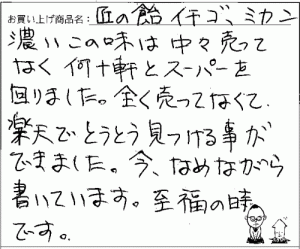 お買い上げ商品名：匠の飴イチゴ、ミカン
濃いこの味は中々売って
なく何十軒とスーパーを
回りました。全く売ってなくて、
楽天でとうとう見つける事が
できました。今、なめながら
書いています。至福の時
です。